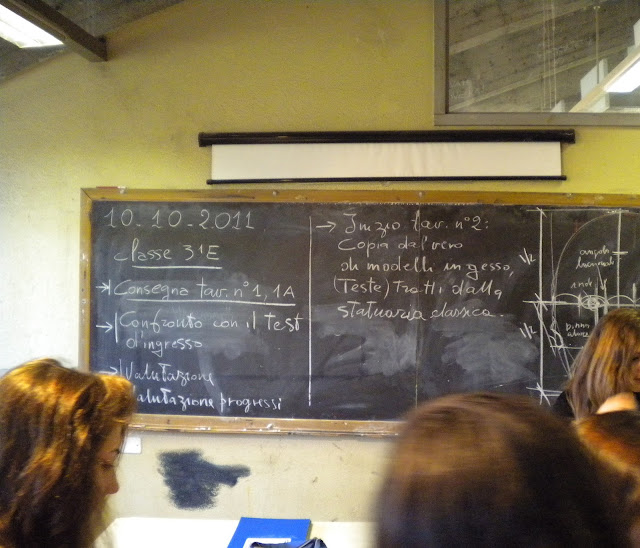 10.10.2011
Classe 3ªE
→ Consegna tav. n°1, 1A
→ Confronto con il Test
d'ingresso
→ Valutazione
Valutazione progressi
→ Inizio tav. n°2:
Copia dal vero
di modelli in gesso,
(Teste) tratti dalla
statuaria classica.
1/2
1/2